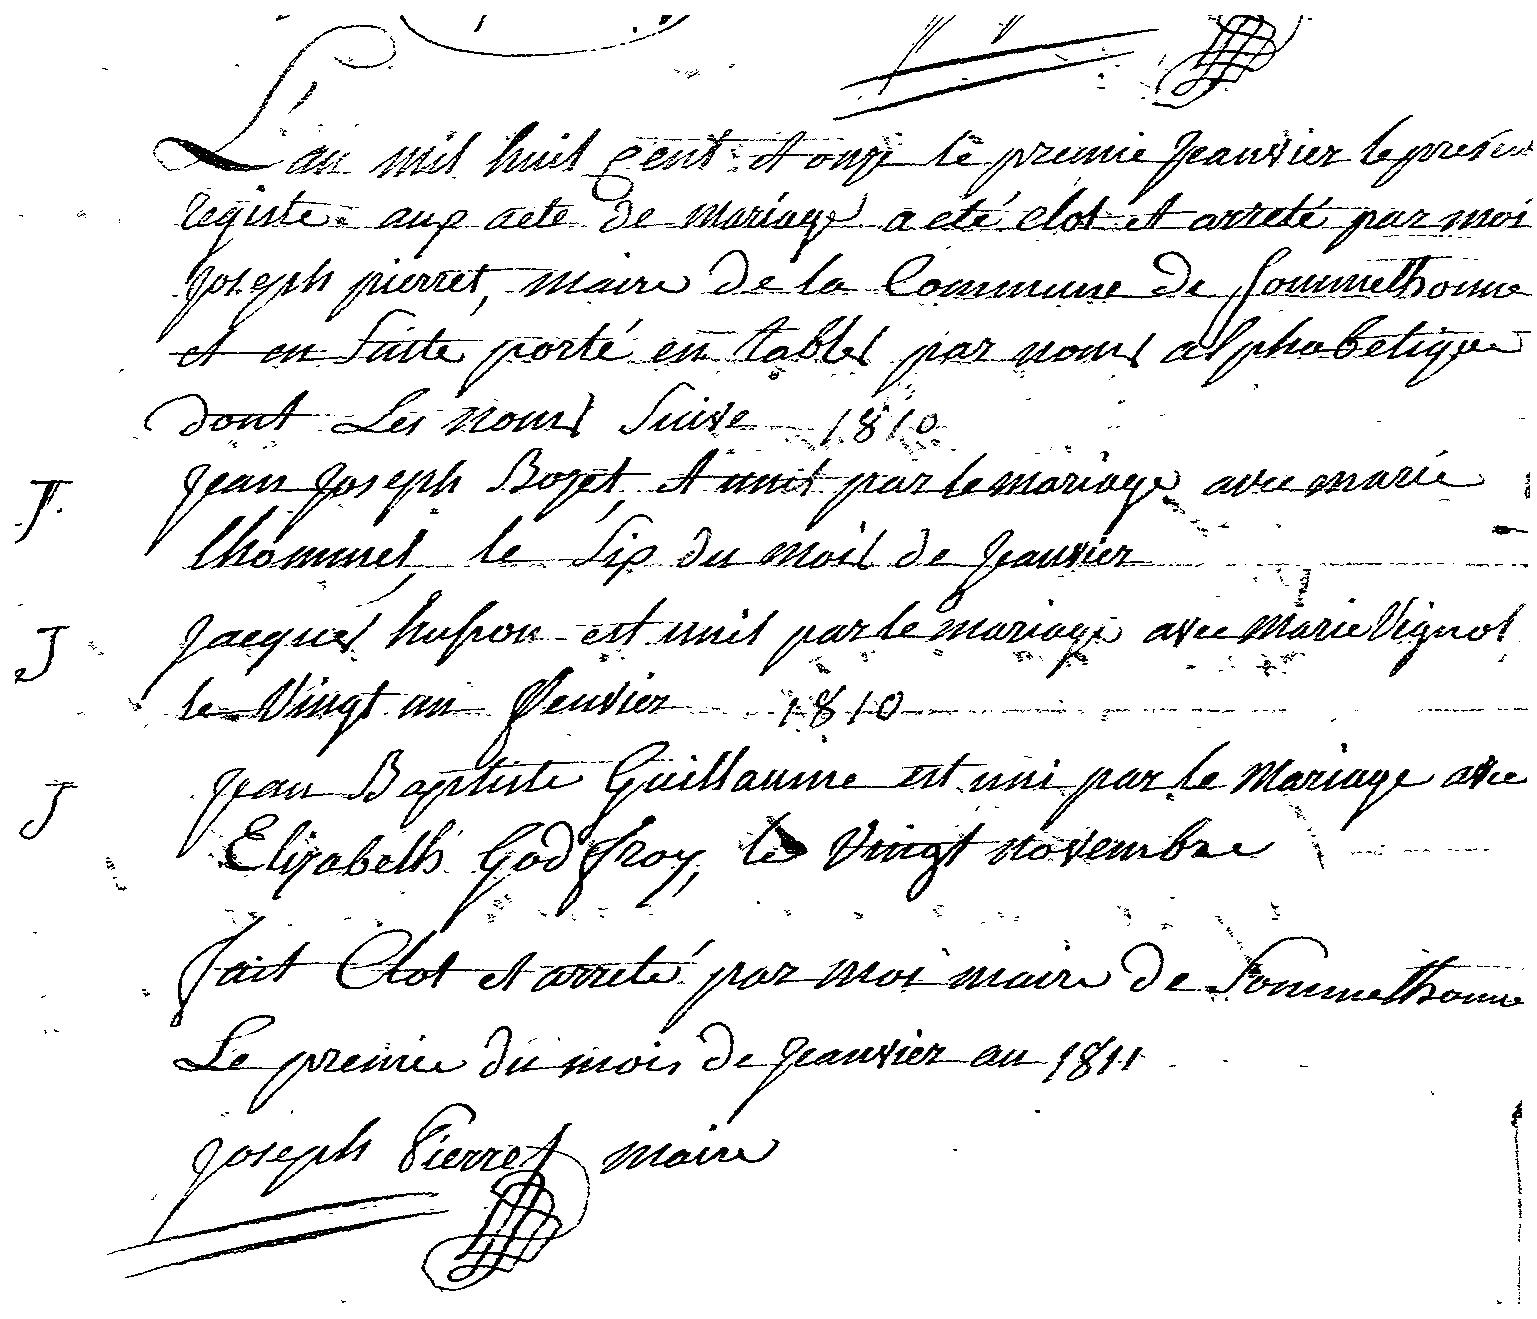 L'an mil huit cent et onze le premie Jeanvier le présen
registe aux acte de mariage a été clot et arreté par moi
Joseph pierret, maire de la Commune de Sommethonne
et en Suite porté en tables par noms alphabetique
dont Les noms Suive 1810
J. Jean Joseph Bozet, et unit par le mariage avec marie
lhommel, le Six du mois de Jeanvier
J Jacques husson est unit par le mariage avec Marie Vignol
le Vingt un Jeenvier 1810
J Jean Baptiste Guillaume est uni par le Mariage avec
Elizabeth Godfroy, le Vingt novembre
fait Clot et arreté par moi maire de Sommethonne
Le premiee du mois de Jeanvier an 1811
Joseph Pierret maire